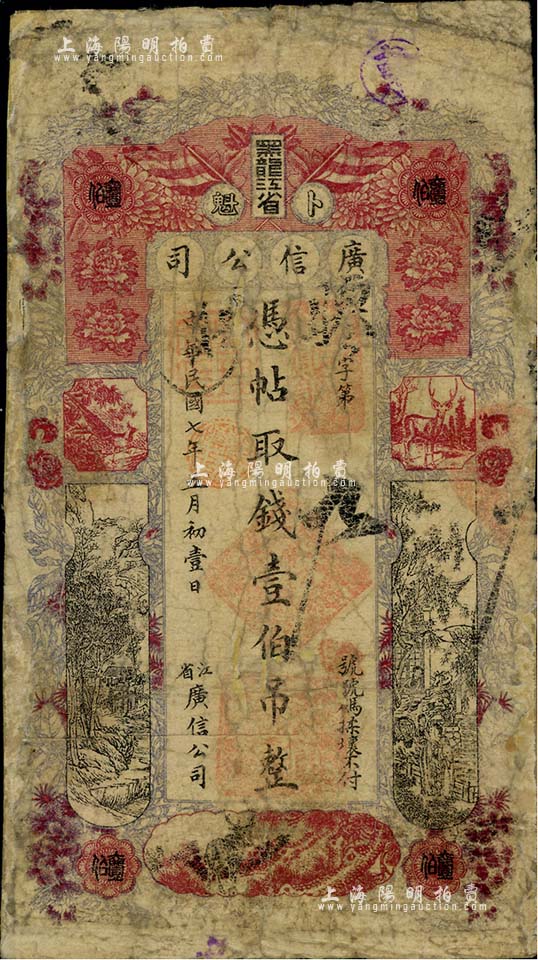 上海陽明拍賣
www.yangmingauction.com
黑龍江省
卜魁
廣信公司
字第
號
號碼揉壞不付
憑帖取錢壹伯吊整
中華民國七年
月初壹日
江省廣信公司
上海陽明拍賣
www.yangmingauction.com
上海陽明拍賣
www.yangmingauction.com